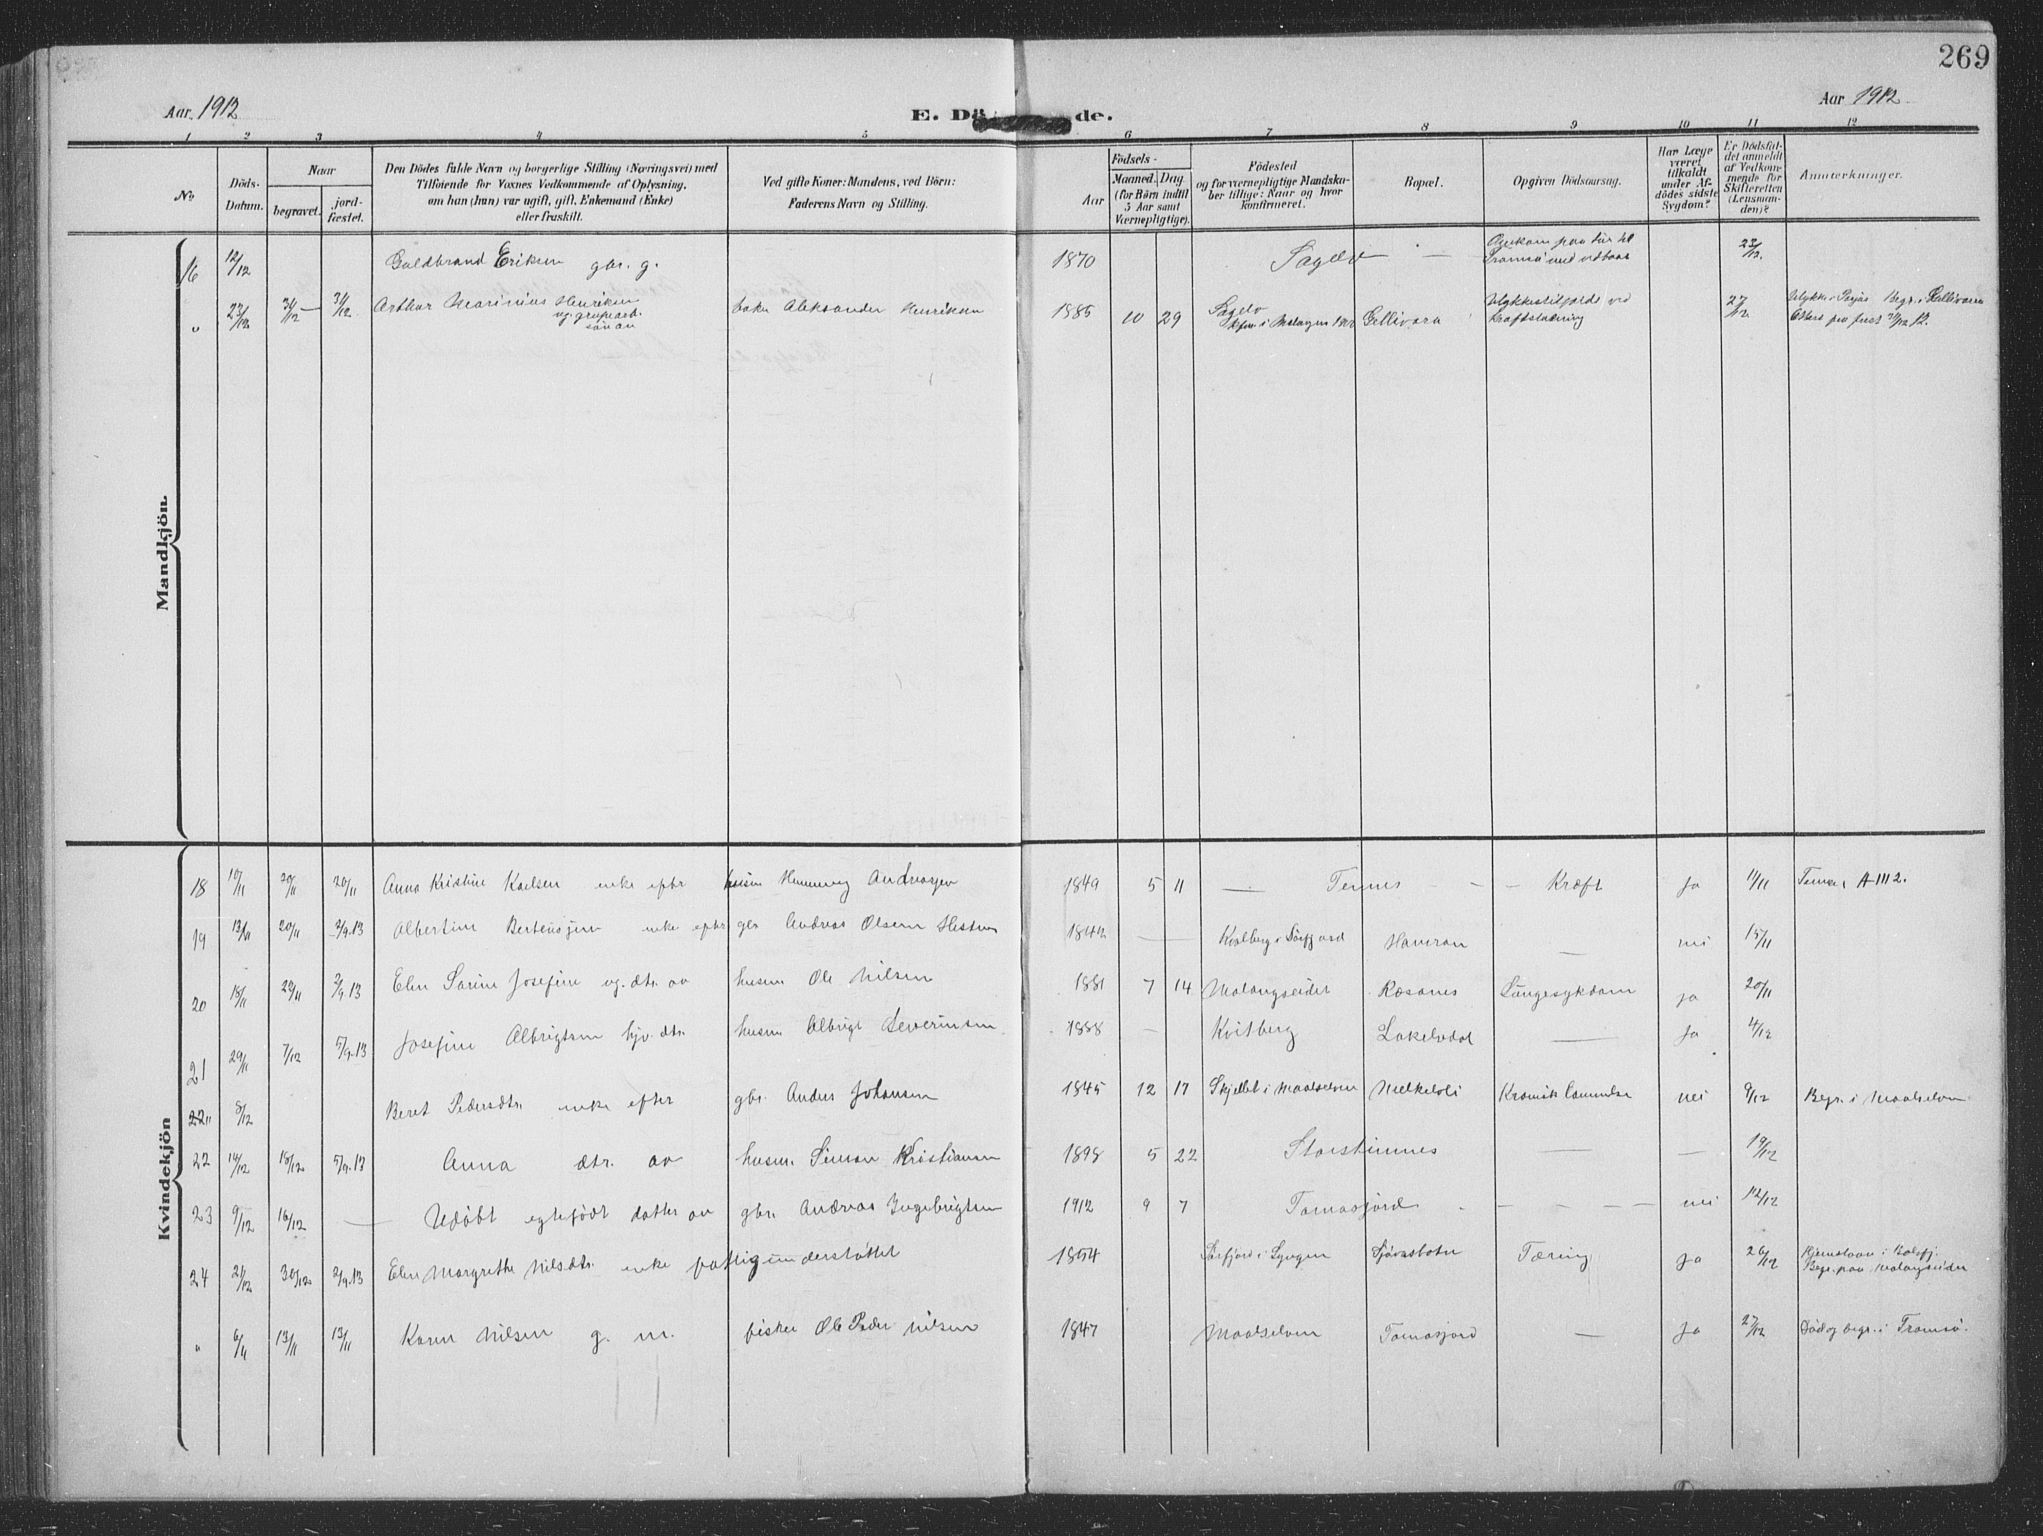 269
Aar 1912
E. Dö de.
Aar 1912
1 2 3 4 5 6 7 8 9 10 11 12
No.
Döds-
Datum.
Naar
begravet.
jord-
fæstet.
Den Dödes fulde Navn og borgerlige Stilling (Næringsvei) med
Tilföiende for Voxnes Vedkommende af Oplysning,
om han (hun) var ugift, gift, Enkemand (Enke)
eller fraskilt.
Ved gifte Koner: Mandens, ved Börn:
Faderens Navn og Stilling.
Aar
Födsels-
Maaned. Dag
(for Börn indtil
5 Aar samt
Værnepligtige).
Födested
og for værnepligtige Mandska-
ber tillige: Naar og hvor
konfirmeret.
Bopæl.
Opgiven Dödsaarsag.
Har Læge
været
tilkaldt
under Af-
dödes sidste
Sygdom?
Er Dödsfal-
det anmeldt
af Vedkom-
mende for
Skifteretten
(Lensman-
den)?
Anmærkninger.
Mandkjön.
16 12/12 Guldbrand Eriksen gbr. g. 1870 Sagelv — Omkom paa tur til 23/12
Tromsö med vedbaat
" 23/12 31/12 — 31/12 Arthur Marinius Henriksen baker Aleksander Henriksen 1885 10 29 Sagelv Gellivara Ulykkestilfælde ved 27/12
ug. grubearb.
sön av
kraftstation
Kvindekjön
18 10/11 20/11 20/11 Anna Kristine Karlsen enke efter husm Henning Andreasen 1849 5 11 — Tennes - - Kræft ja 11/11
19 13/11 20/11 2/9.13 Albertine Berteusjen enke efter gbr Andreas Olsen Hestnes 1842 — Kvalberg i Sörfjord Havnran — nei 15/11
20 15/11 20/11 2/9.13 Elen Sarine Josefine ug. dtr. av husm Ole Nilsen 1881 7 14 Malangseidet Ræsanes Lungesykdom ja 20/11
21 29/11 7/12 5/9.13 Josefine Albrigtsen hjv. dtr. husm Albrigt Severinsen 1888 — Kvitberg Lakselvdal — ja 4/12
22 " 8/12 Beret Pedersdtr. enke efter gbr. Anders Johansen 1845 12 17 Skjellet i Maalselven Melkelvli Kronisk nei 9/12 Begr. i Maalselven
22 14/12 18/12 5/9.13 Anna dtr. av husm. Simon Kristiansen 1898 5 22 Storsteinnes — — 19/12
23 9/12 16/12 — Udöbt egtefödt datter av gbr. Andreas Ingebrigtsen 1912 9 7 Tomasjord - - - - nei 12/12
24 21/12 30/12 2/9.13 Elen Margrethe Nilsdtr. enke fattigunderstöttet 1854 Sörfjord i Lyngen Sjövasbotn Tæring ja 26/12 Hjemstavn i Balsfj.
Begr. paa Malangseidet
" 6/11 13/11 13/11 Karen Nilsen g. m. fisker Ole Peder Nilsen 1847 Maalselven Tomasjord — ja 27/12 Död og begr. i Tromsö.